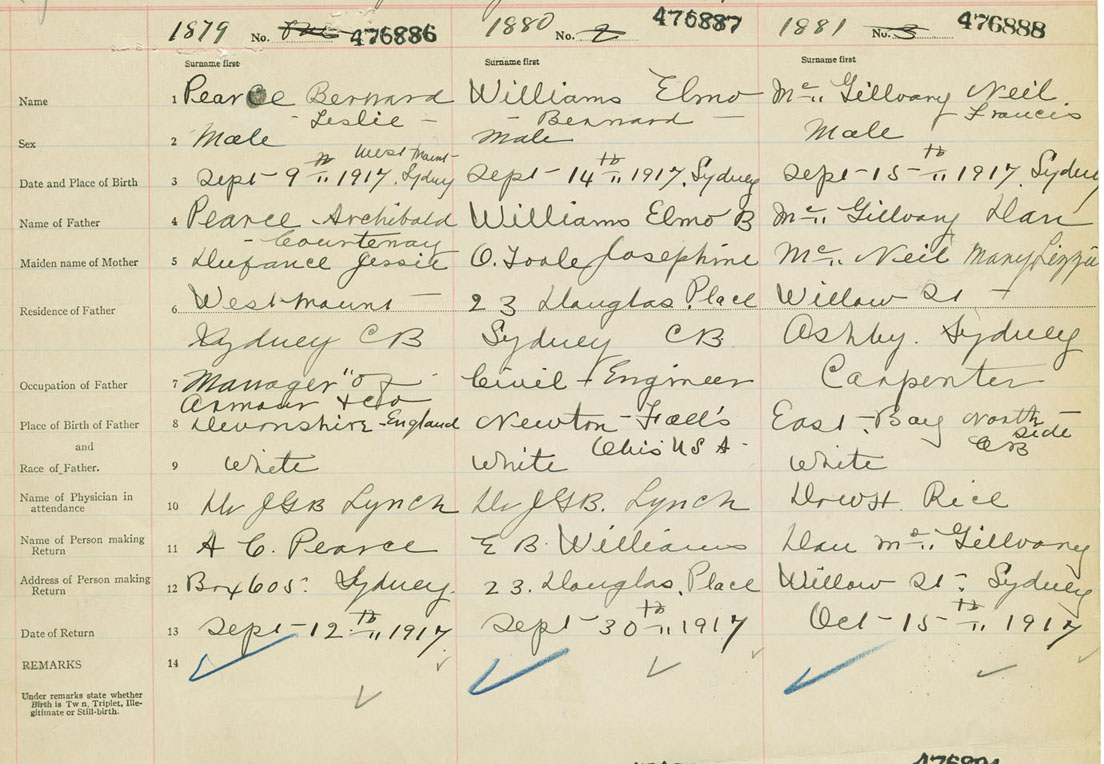 1879 No. One 476886 1880 No. 2 476887 1881 No. 3 476888
Surname first Surname first Surname first
Name 1 Pearce Bernard Williams Elmo Mc Gillvary Neil.
- Leslie - - Bernard - - Francis
Sex 2 Male Male Male
West Mount-
Date and Place of Birth 3 Sept - 9th 1917. Sydney Sept - 14th 1917. Sydney Sept - 15 - th 1917. Sydney
Name of Father 4 Pearce - Archibald Williams Elmo B Mc Gillvary Dan
- Courtenay
Maiden name of Mother 5 Jessie O.Toole Josephine Mc Neil Mary Lizzie
Residence of Father 6 West-mount - 23 Douglas Place Willow St -
Sydney CB Sydney CB Ashby. Sydney
Occupation of Father 7 Manager "of Civil - Engineer Carpenter
Armour & Co
Place of Birth of Father 8 Devonshire - England Newton - Fall's East - Bay North Side
and Ohio U S A - CB
Race of Father. 9 White White White
Name of Physician in attendance 10 Dr J G B Lynch Dr J G B. Lynch Dr W H Rice
Name of Person making Return 11 A C. Pearce E B. Williams Dan Mc Gillvary
Address of Person making Return 12 Box 605. Sydney. 23. Douglas. Place Willow St - Sydney
Date of Return 13 Sept - 12 th 1917 Sept - 30 th 1917 Oct - 15 - th 1917
REMARKS 14
Under remarks state whether
Birth is Tw n, Triplet, Ille-
gitimate or Still-birth.